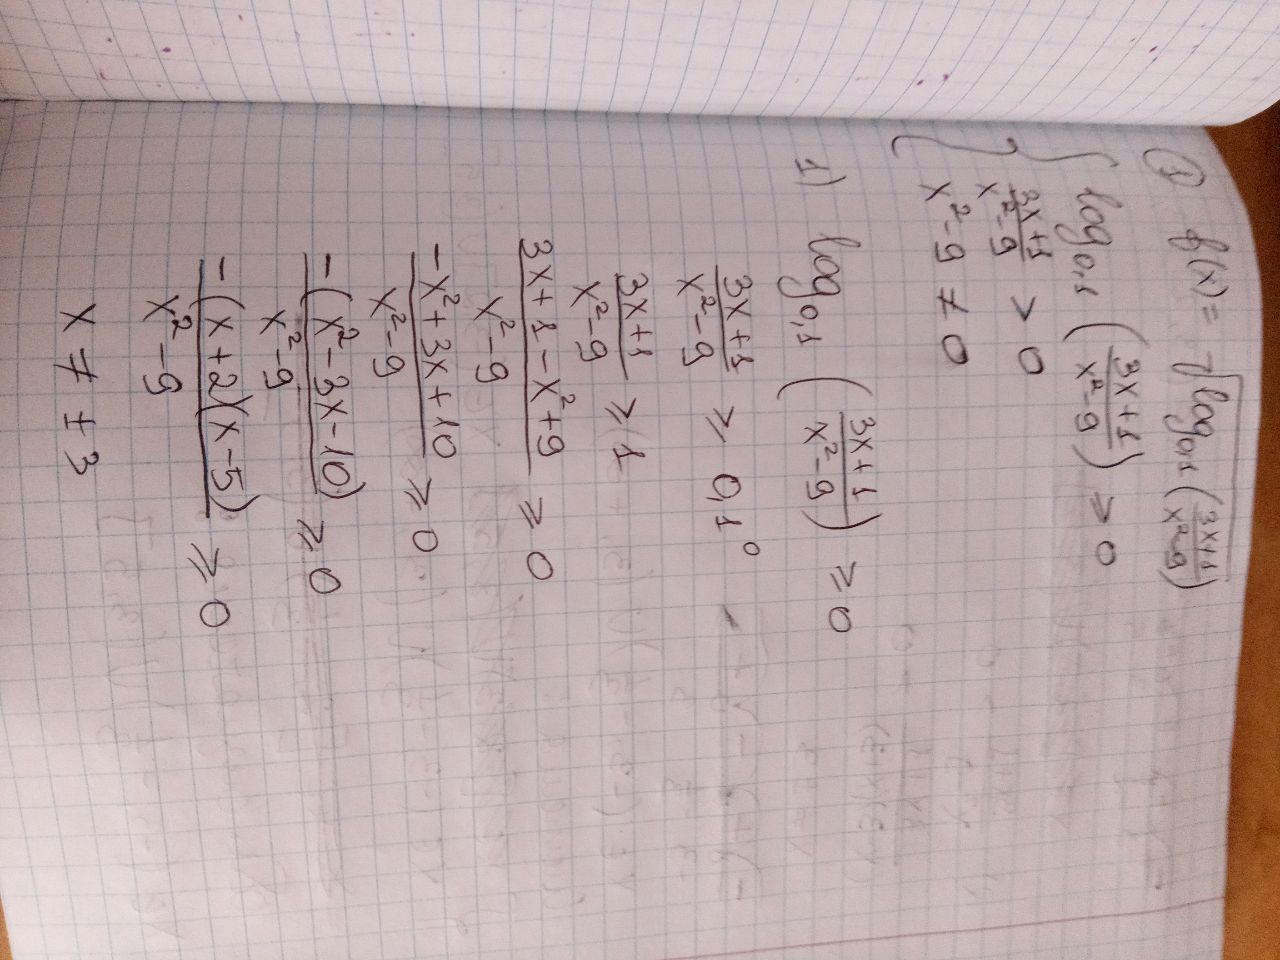 ① f(x) = √log₀,₁ ((3x+1)/(x²-9))
log₀,₁ ((3x+1)/(x²-9)) ⩾ 0
(3x+1)/(x²-9) > 0
x²-9 ≠ 0
1) log₀,₁ ((3x+1)/(x²-9)) ⩾ 0
(3x+1)/(x²-9) ⩾ 0,1⁰
(3x+1)/(x²-9) ⩾ 1
(3x+1-x²+9)/(x²-9) ⩾ 0
(-x²+3x+10)/(x²-9) ⩾ 0
(-(x²-3x-10))/(x²-9) ⩾ 0
(-(x+2)(x-5))/(x²-9) ⩾ 0
x ≠ ±3